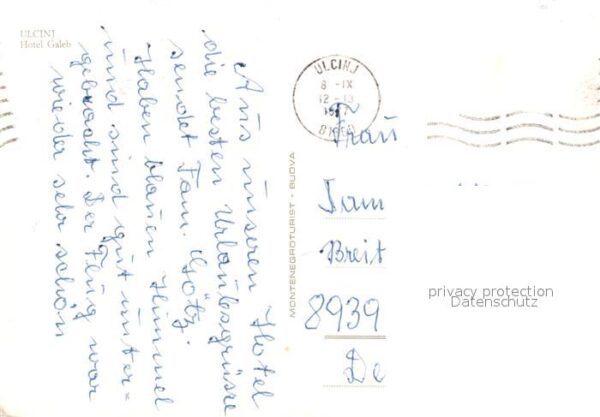 ULCINJ
Hotel Galeb
Aus unseren Hotel
die besten Urlaubsgrüsse
sendet Fam. Götz.
Haben blauen Himmel
und sind gut unter-
gebracht. Der Flug war
wieder sehr schön
MONTENEGROTURIST - BUDVA
ULCINJ
8 -IX
12 - 13
Frau
Fam
Breit
8939
De
privacy protection
Datenschutz